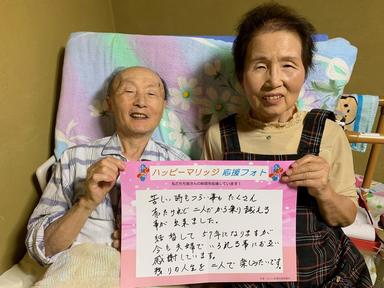 ハッピーマリッジ 応援フォト
私たちも皆さんの結婚を応援しています！
苦しい時もつらい事も たくさん
有たけれど 二人だから乗り越える
事が 出来ました。
結婚して 57年になりますが
今も 夫婦でいられる事にお互い
感謝しています。
残りの人生を 二人で 楽しみたいです